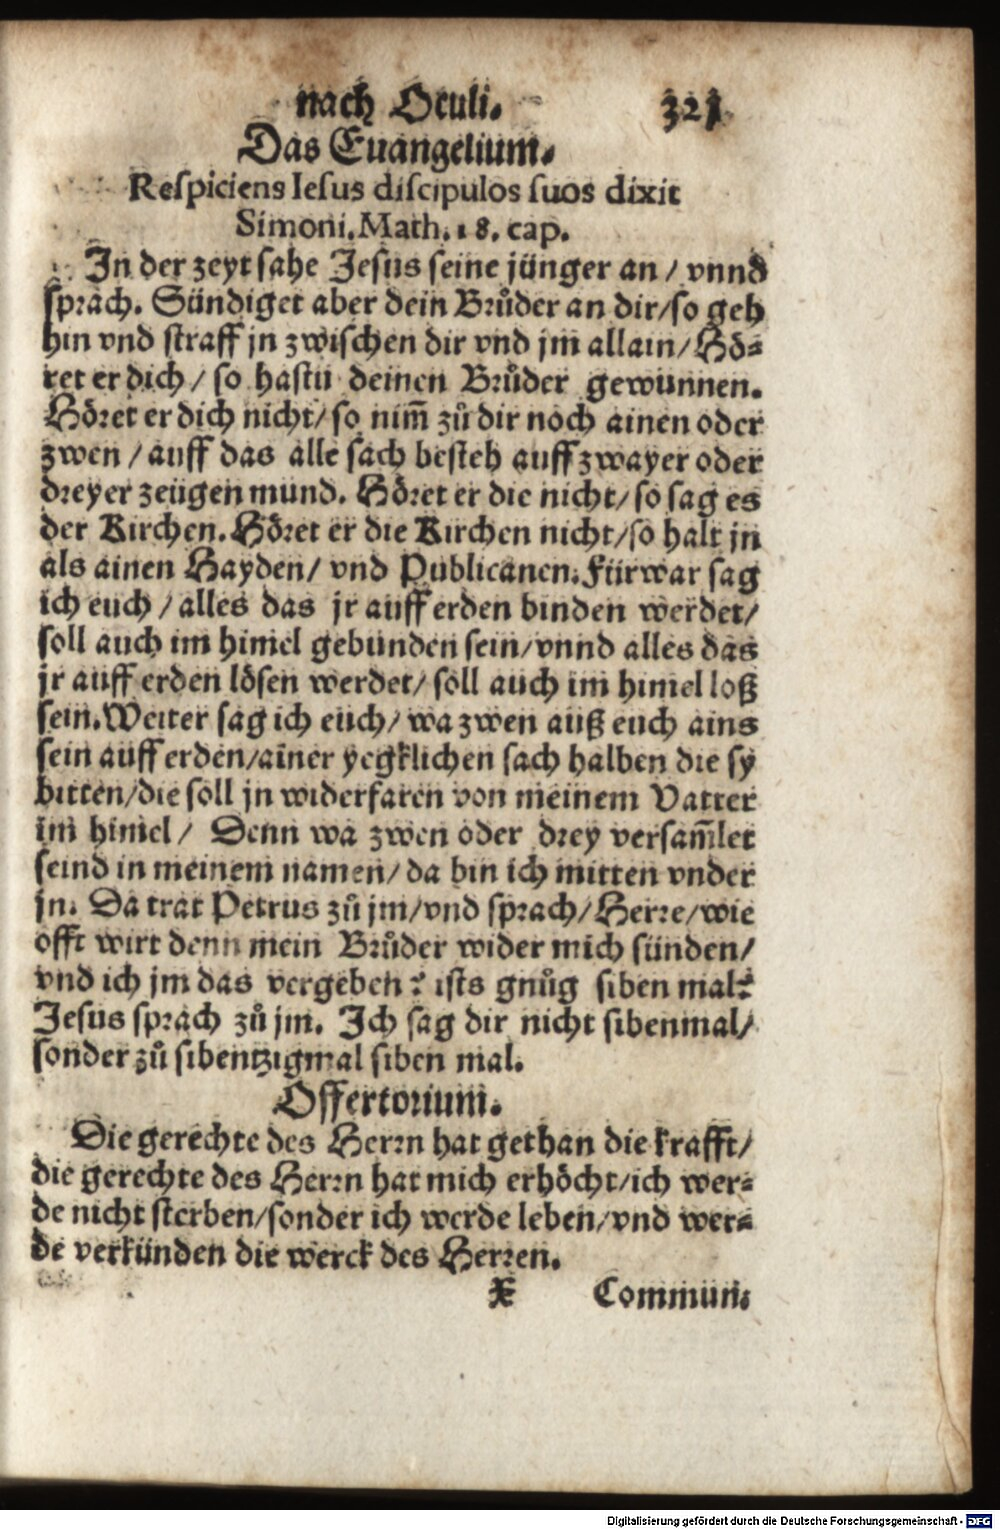 nach Oculi. 321
Das Euangelium.
Respiciens Iesus discipulos suos dixit
Simoni. Math. 18. cap.
In der zeyt sahe Jesus seine jünger an / vnnd
sprach. Sündiget aber dein Brůder an dir/so geh
hin vnd straff jn zwischen dir vnd jm allain/Hö-
ret er dich / so hastu deinen Brůder gewunnen.
Höret er dich nicht/so nim̃ zů dir noch ainen oder
zwen / auff das alle sach besteh auff zwayer oder
dreyer zeugen mund. Höret er die nicht/so sag es
der Kirchen. Höret er die Kirchen nicht/so halt jn
als ainen Hayden/ vnd Publicanen. Fürwar sag
ich euch / alles das jr auff erden binden werdet/
soll auch im himel gebunden sein/vnnd alles das
jr auff erden lösen werdet/ soll auch im himel loß
sein. Weiter sag ich euch/ wa zwen auß euch ains
sein auff erden/ainer yegklichen sach halben die sy
bitten/die soll jn widerfaren von meinem Vatter
im himel / Denn wa zwen oder drey versam̃let
seind in meinem namen/ da bin ich mitten vnder
jn. Da trat Petrus zů jm/vnd sprach/Herre/wie
offt wirt denn mein Brůder wider mich sünden/
vnd ich jm das vergeben? ists gnůg siben mal?
Jesus sprach zů jm. Ich sag dir nicht sibenmal/
sonder zů sibentzigmal siben mal.
Offertorium.
Die gerechte des Herrn hat gethan die krafft/
die gerechte des Herrn hat mich erhöcht/ich wer-
de nicht sterben/sonder ich werde leben/vnd wer-
de verkünden die werck des Herren.
X Commun.
Digitalisierung gefördert durch die Deutsche Forschungsgemeinschaft - DFG